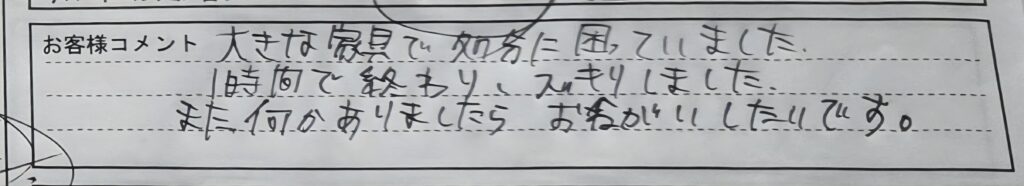 お客様コメント 大きな家具で処分に困っていました.
1時間で終わり、スッキリしました.
また何かありましたら おねがいしたいです。